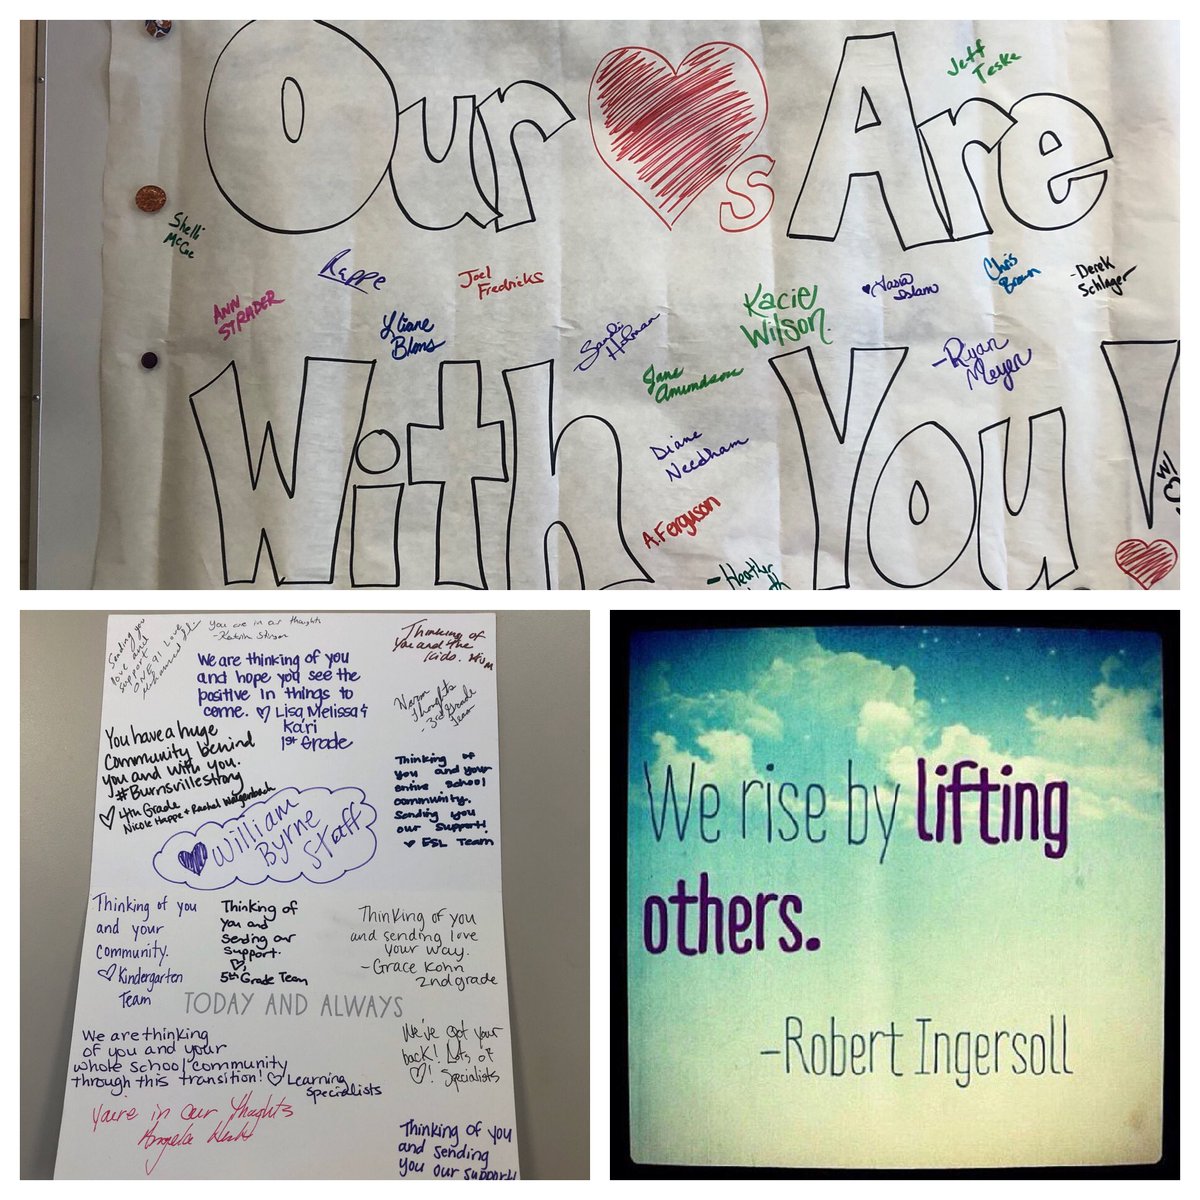 Our s Are
Jeff
Teske
Shelli
McCue
Rappe
Joel
Fredricks
Chris
Brown
-Derek
Schlager
ANN
STRADER
Kacie
Wilson
Sandi
Holman
Jane
Amundson
-Ryan
Meyer
With You!
W/
Diane
Needham
A.Ferguson
-Heather
Sending you
love and
support
ONE91 Love
You are in our thoughts
-Katrin Stinson
Thinking of
You and the
kids.
We are thinking of you
and hope you see the
positive in things to
come. Lisa, Melissa &
Kari
1st Grade
Warm
Thoughts
-3rd Grade
Team
You have a huge
Community behind
you and with you.
#Burnsvillestrong
4th Grade
Nicole Happe + Rachel
Thinking of
you and your
entire school
community.
Sending you
our support!
ESL Team
William
Byrne
Staff
Thinking of you
and your
community.
Kindergarten
Team
Thinking of
you and
sending our
support.
5th Grade Team
Thinking of you
and sending love
your way.
-Grace Kohn
2nd grade
TODAY AND ALWAYS
We are thinking
of you and your
whole school community
through this transition! Learning
Specialists
We've Got your
back! Lots of
! Specialists
You're in our thoughts
Angela
Thinking of you
and sending
you our support!
We rise by lifting
others.
-Robert Ingersoll